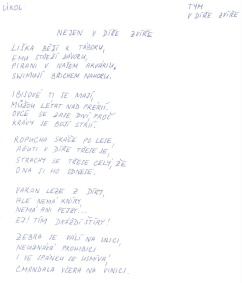 ÚKOL
TÝM
V DÍŘE ZVÍŘE
NEJEN V DÍŘE ZVÍŘE
LIŠKA BĚŽÍ K TÁBORU,
EMU STŘEŽÍ ZÁVORU,
PIRANI V NAŠEM AKVÁRIU,
SWIMUJÍ BŘICHEM NAHORU.
IBISOVÉ TI SE MAJÍ,
MŮŽOU LÉTAT NAD PRÉRIÍ.
OVCE SE ZASE DIVÍ PROČ
KRÁVY SE BOJÍ STŘÍ.
ROPUCHA SKÁČE PO LESE,
V DÍŘE TŘESE SE!
STRACHY SE TŘESE CELÝ, ŽE
ONA SI HO ODNESE.
VARAN LEZE Z DÍRY,
ALE NEMÁ KNÍRY,
NEMÁ ANI PEJZY...
EJ! TÍM ŠTÍRY!
ZEBRA SE VÁLÍ NA ULICI,
NEUZNÁVÁ PROHIBICI
I VE SPÁNKU SE USMÍVÁ
ČMANDALA VČERA NA VINICI.